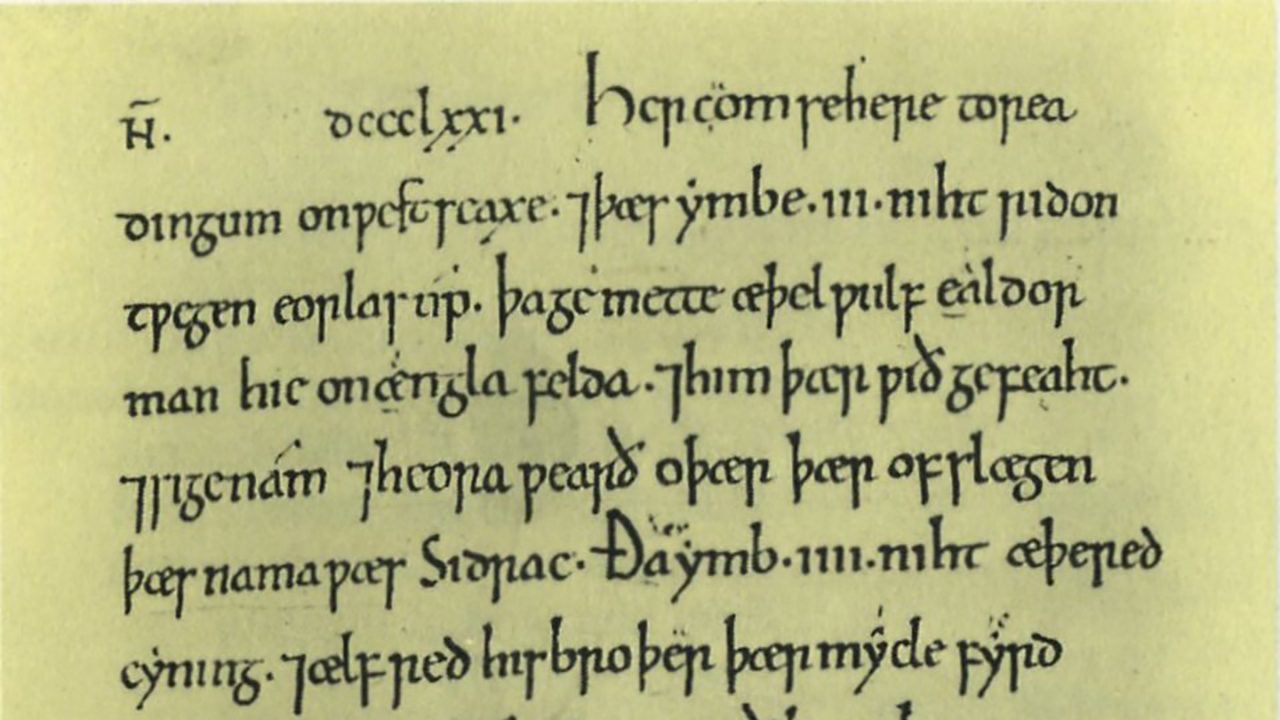 Ħ. dccclxxi. Her com se here to rea
dingum on ƿestseaxe. ⁊ þæs ymbe .iii. niht ridon
tƿegen eorlas úp. þa gemette æþelƿulf ealdor
man hie on ængla felda. ⁊ him þær ƿið gefeaht.
⁊ sige nám ⁊ heora ƿearð oþær þær ofslægen
þæs nama ƿæs Sidrac. Ða ymb .iiii. niht æþered
cyning. ⁊ ælfred his broþer þær mycle fyrd